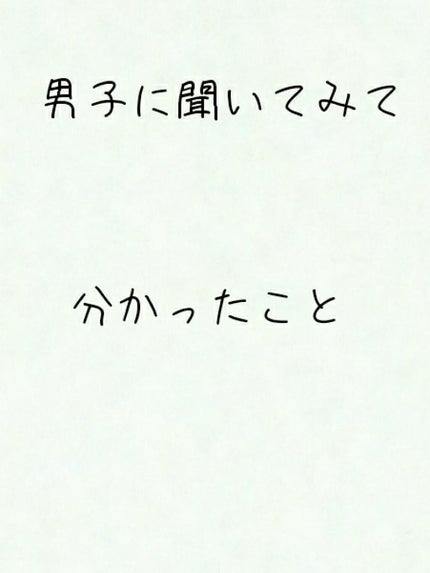 男子に聞いてみて
分かったこと